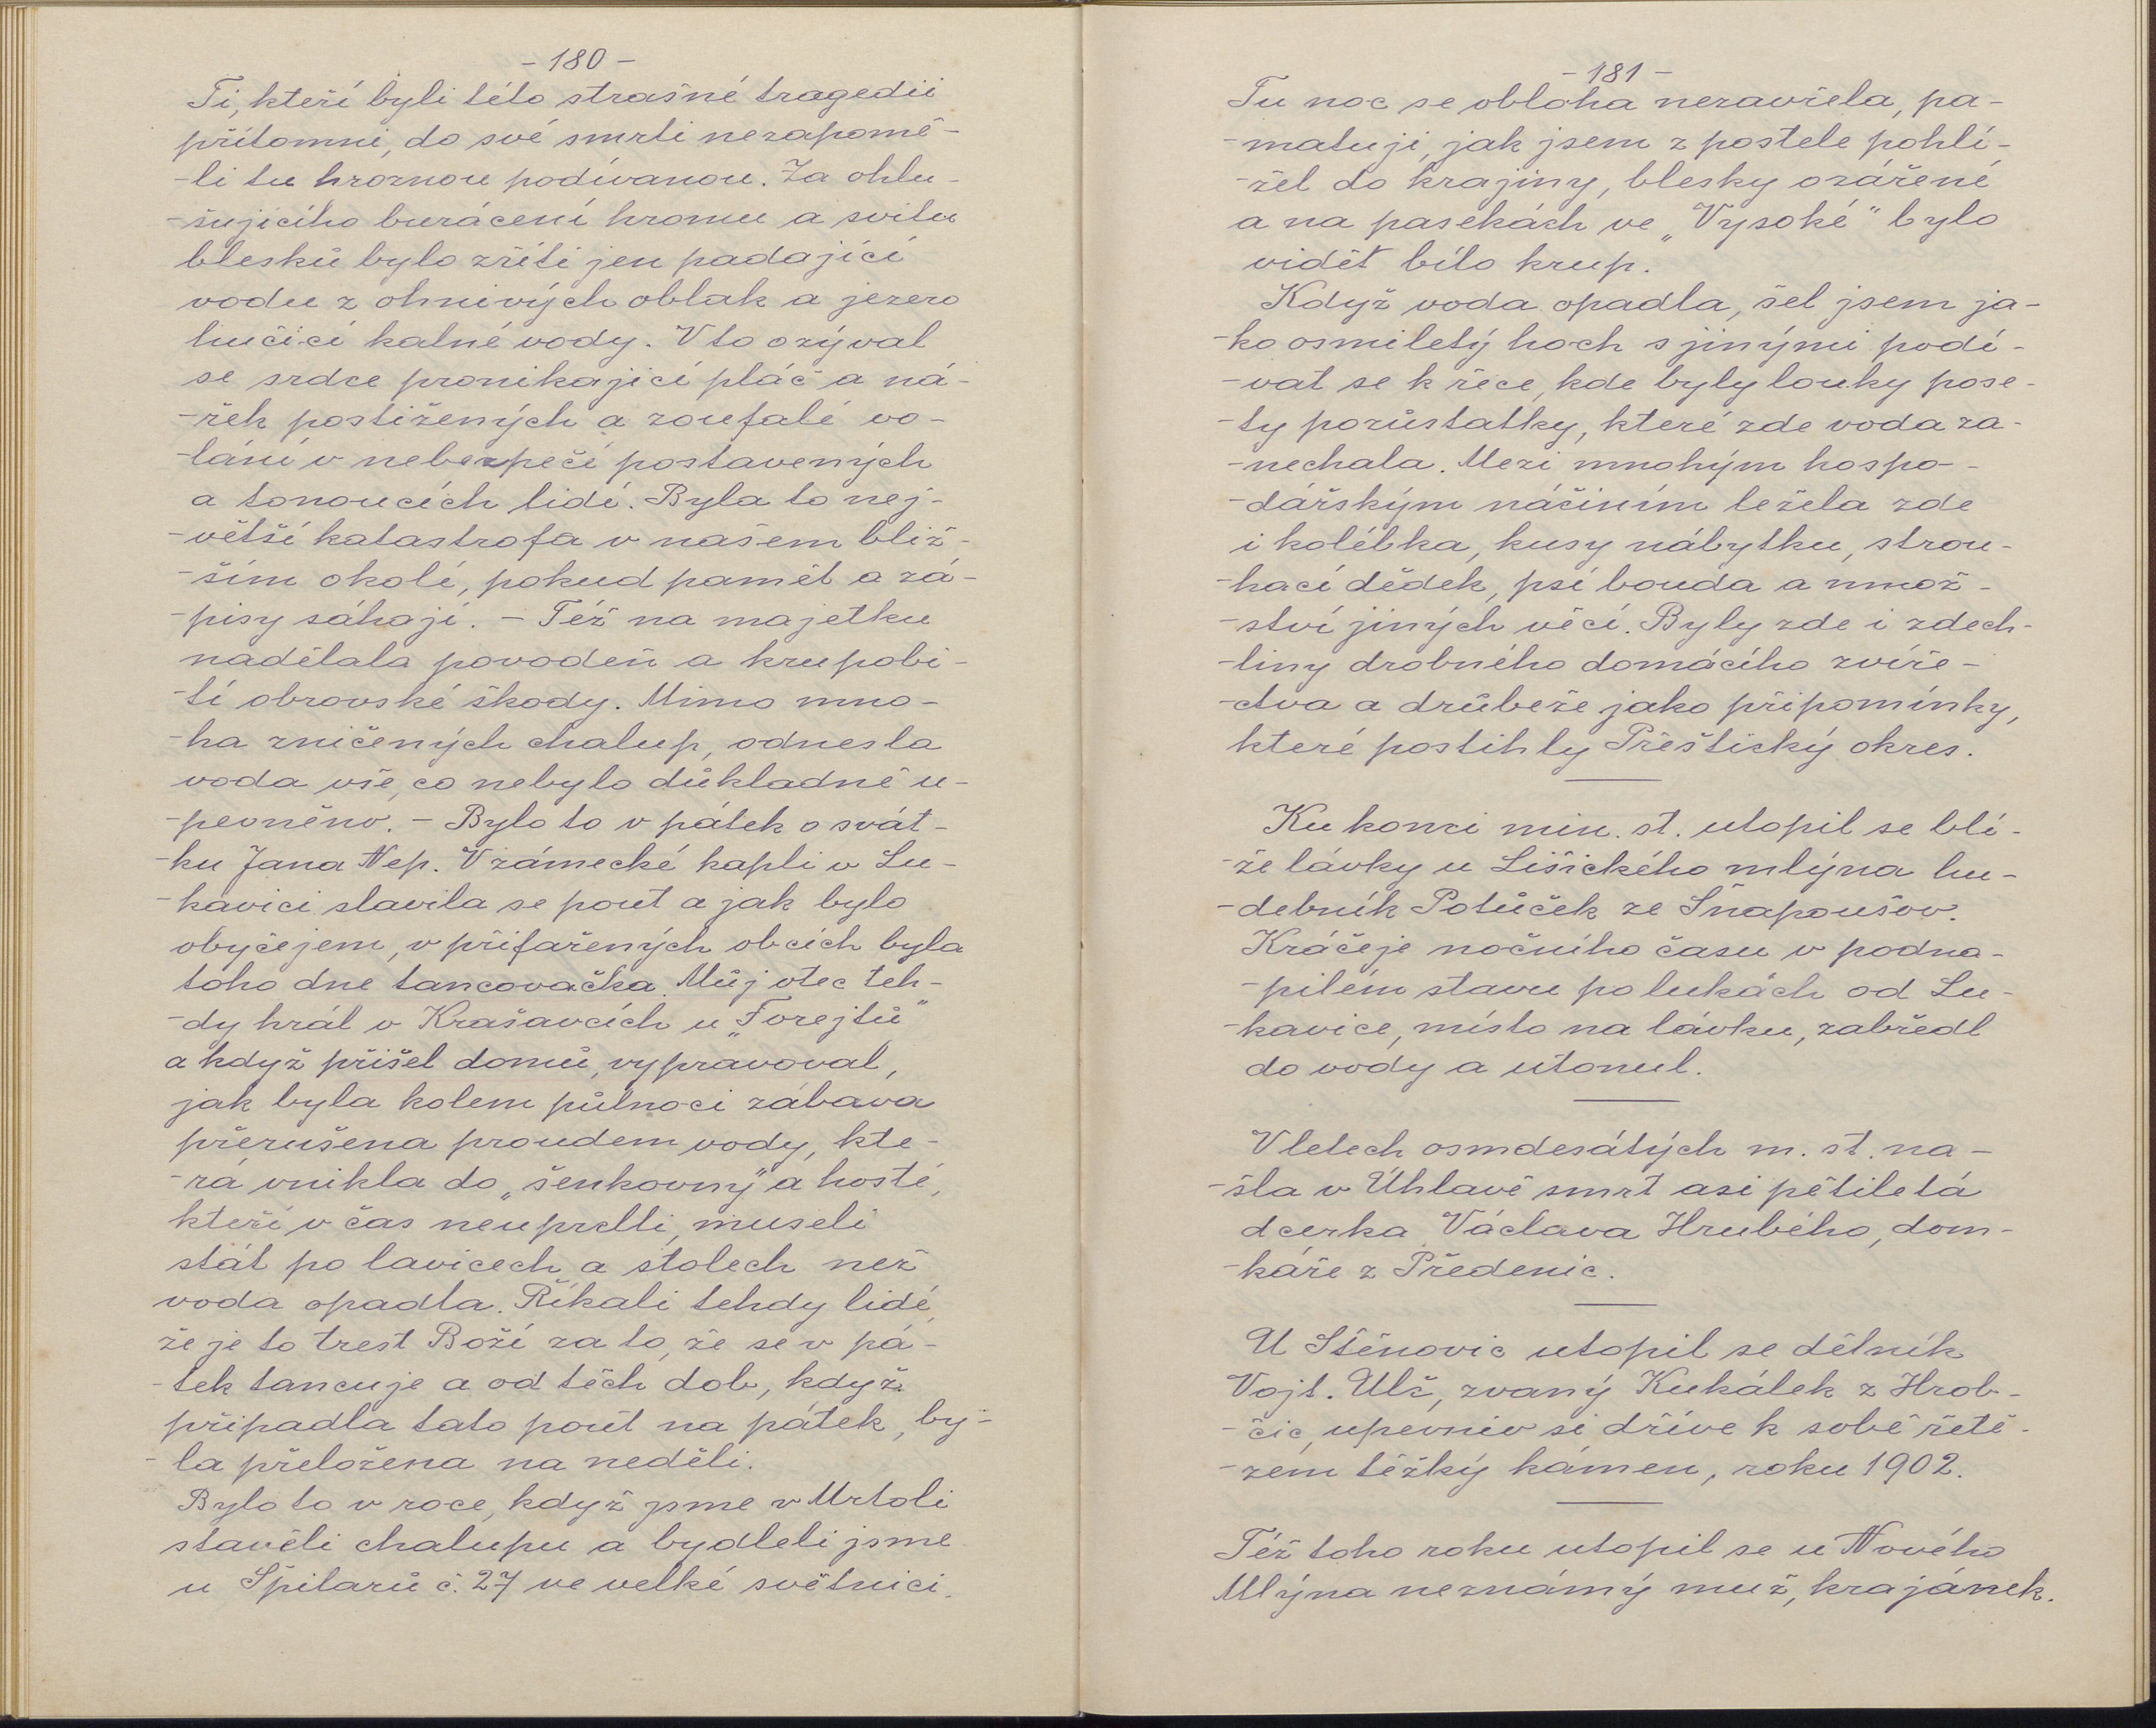 - 180 -
Ti, kteří byli této strašné tragedii
přítomni, do své smrti nezapomě-
-li tu hroznou podívanou. Za ohlu-
-šujícího burácení hromu a svitu
blesků bylo zříti jen padající
vodu z ohnivých oblak a jezero
hučící kalné vody. V to ozýval
se srdce pronikající pláč a ná-
-řek postižených a zoufalé vo-
-lání v nebezpečí postavených
a tonoucích lidí. Byla to nej-
-větší katastrofa v našem bliž-
-ším okolí, pokud paměť a zá-
-pisy sáhají. - Též na majetku
nadělala povodeň a krupobi-
-tí obrovské škody. Mimo mno-
-ha zničených chalup, odnesla
voda vše, co nebylo důkladně u-
-pevněno. - Bylo to v pátek o svát-
-ku Jana Nep. V zámecké kapli v Lu-
-kavici slavila se pouť a jak bylo
obyčejem, v přifařených obcích byla
toho dne tancovačka. Můj otec teh-
-dy hrál v Krašavcích u „Forejtů"
a když přišel domů, vypravoval,
jak byla kolem půlnoci zábava
přerušena proudem vody, kte-
-rá vnikla do „šenkovny" a hosté,
kteří v čas neuprchli, museli
stát po lavicech a stolech než
voda opadla. Říkali tehdy lidé,
že je to trest Boží za to, že se v pá-
-tek tancuje a od těch dob, když
připadla tato pouť na pátek, by-
-la přeložena na neděli.
Bylo to v roce, když jsme v Mrtoli
stavěli chalupu a bydleli jsme
u Špilarů č. 27 ve velké světnici.
- 181 -
Tu noc se obloha nezavřela, pa-
-matuji, jak jsem z postele pohlí-
-žel do krajiny, blesky ozářené
a na pasekách ve „Vysoké" bylo
vidět bílo krup.
Když voda opadla, šel jsem ja-
-ko osmiletý hoch s jinými podí-
-vat se k řece, kde byly louky pose-
-ty pozůstatky, které zde voda za-
-nechala. Mezi mnohým hospo-
-dářským náčiním ležela zde
i kolébka, kusy nábytku, strou-
-hací dědek, psí bouda a množ-
-ství jiných věcí. Byly zde i zdech-
-liny drobného domácího zvíře-
-ctva a drůbeže jako připomínky,
které postihly Přeštický okres.
Ku konci min. st. utopil se blí-
-že lávky u Lišického mlýna hu-
-debník Potůček ze Šnapoušov.
Kráčeje nočního času v podna-
-pilém stavu po lukách od Lu-
-kavice, místo na lávku, zabředl
do vody a utonul.
V letech osmdesátých m. st. na-
-šla v Úhlavě smrt asi pětiletá
dcerka Václava Hrubého, dom-
-káře z Předenic.
U Štěnovic utopil se dělník
Vojt. Ulč, zvaný Kukálek z Hrob-
-čic, upevniv si dříve k sobě řetě-
-zem těžký kámen, roku 1902.
Též toho roku utopil se u Nového
Mlýna neznámý muž, krajánek.